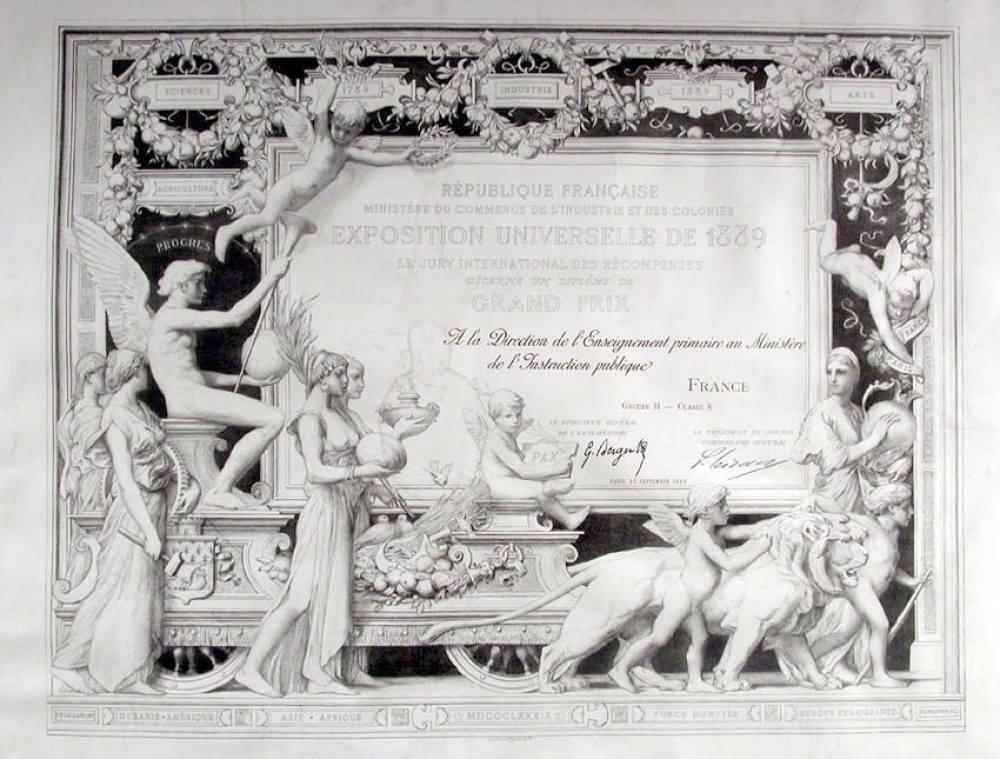 SCIENCES
1789
INDUSTRIE
1889
ARTS
AGRICULTURE
PROGRES
RÉPUBLIQUE FRANÇAISE
MINISTÈRE DU COMMERCE DE L'INDUSTRIE ET DES COLONIES
EXPOSITION UNIVERSELLE DE 1889
LE JURY INTERNATIONAL DES RÉCOMPENSES
DÉCERNE UN DIPLÔME DE
GRAND PRIX
A la Direction de l'Enseignement primaire au Ministère
de l'Instruction publique
FRANCE
GROUPE II — CLASSE 6
LE DIRECTEUR GÉNÉRAL
DE L'EXPLOITATION
LE PRÉSIDENT DU CONSEIL
COMMISSAIRE GÉNÉRAL
G. Berger
PARIS 29 SEPTEMBRE 1889
PAX
FRANCE
PARIS
OCEANIE • AMÉRIQUE
ASIE • AFRIQUE
MDCCCLXXXIX
FORCE DOMPTÉE
EUROPE RENAISSANTE